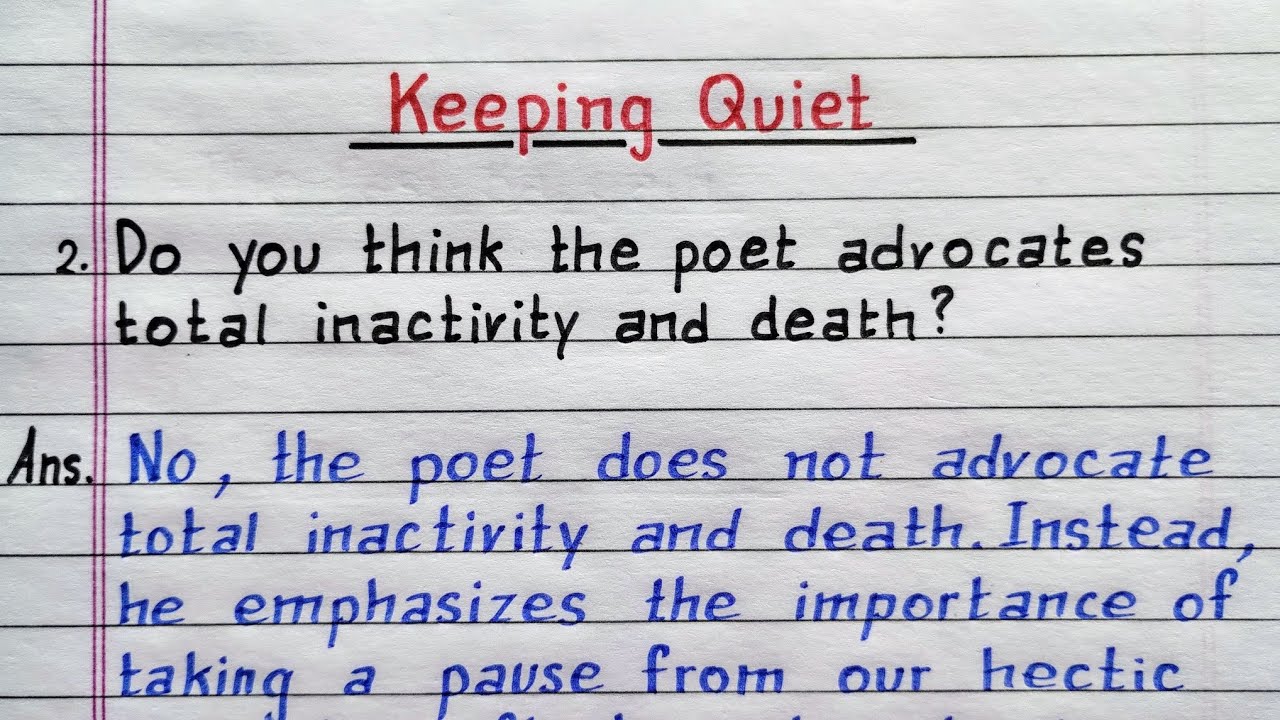 Keeping Quiet
2. Do you think the poet advocates
total inactivity and death?
Ans. No, the poet does not advocate
total inactivity and death. Instead,
he emphasizes the importance of
taking a pause from our hectic